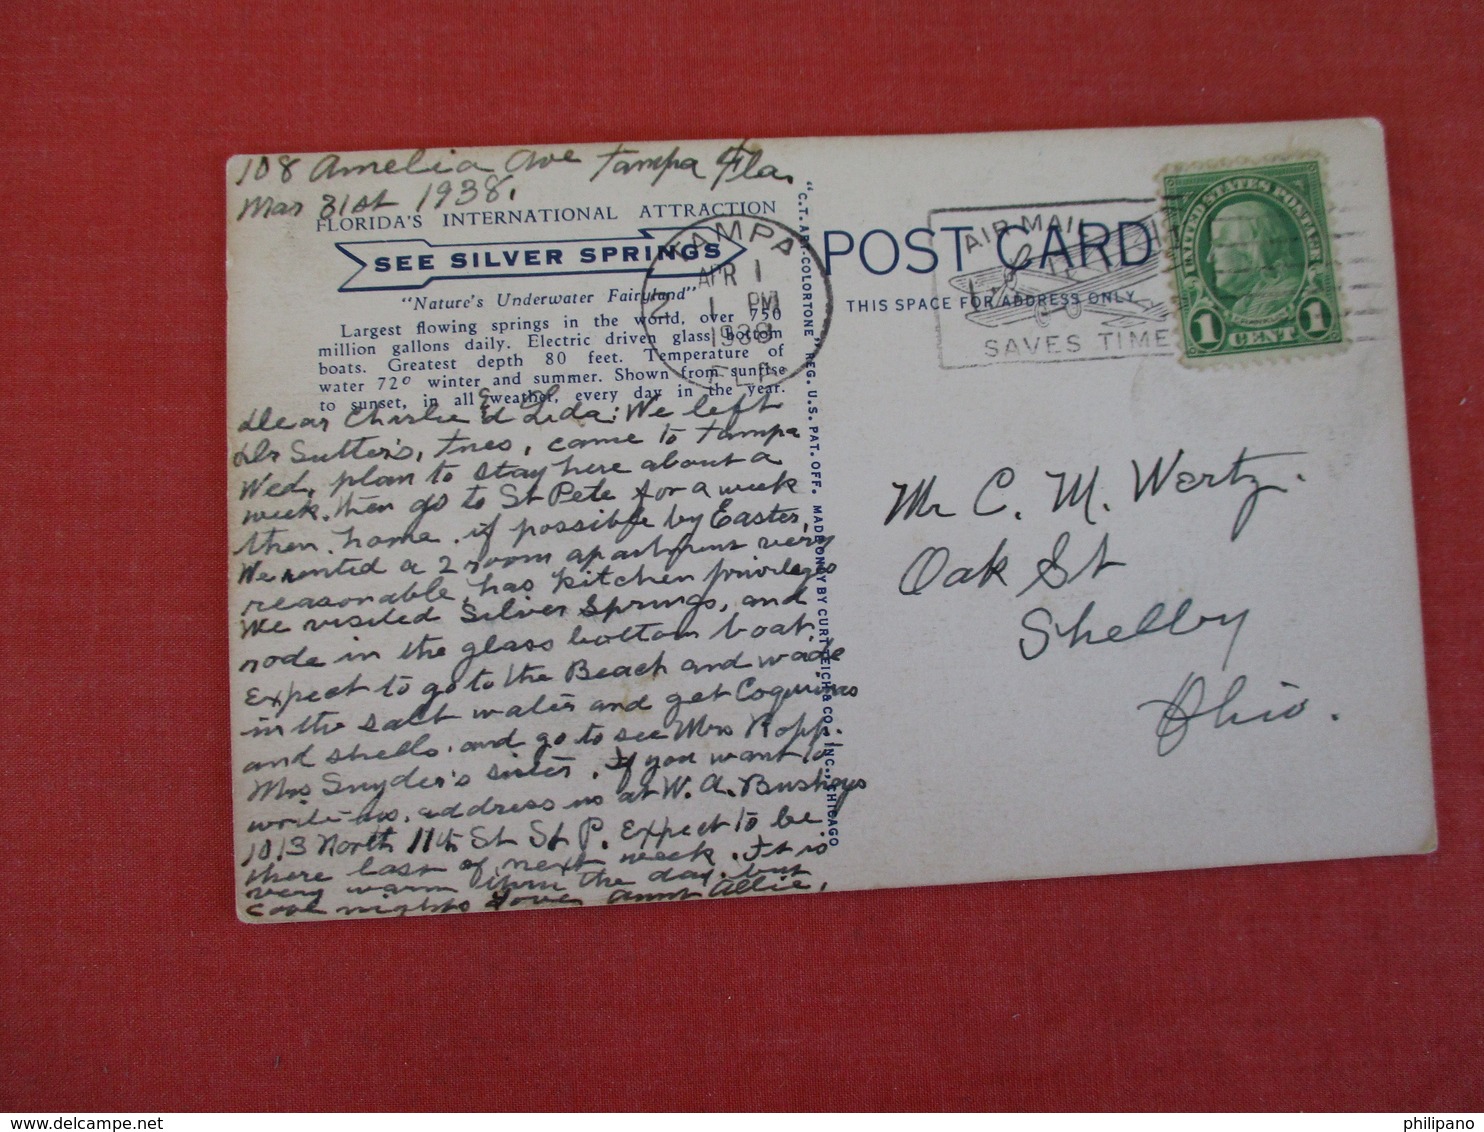 108 Amelia Ave Tampa Fla.
Mar 31st 1938.
FLORIDA'S INTERNATIONAL ATTRACTION
SEE SILVER SPRINGS
"Nature's Underwater Fairyland"
Largest flowing springs in the world, over 750
million gallons daily. Electric driven glass bottom
boats. Greatest depth 80 feet. Temperature of
water 72° winter and summer. Shown from sunrise
to sunset, in all weather, every day in the year.
Dear Charlie & Leda: We left
Dr Sutter's, Tues, came to Tampa
Wed, plan to stay here about a
week. then go to St Pete for a week
then. home. if possible by Easter,
We rented a 2 room apartment very
reasonable, has kitchen privileges
We visited Silver Springs, and
rode in the glass bottom boat.
Expect to go to the Beach and wade
in the salt water and get Coquinas
and shells. and go to see Mrs Ropp.
Mrs Snyder's sister. If you want to
write us. address us at W. A. Busheys
1013 North 11th St St P. Expect to be
there last of next week. It is
very warm thru the day. but
cool nights Love, Aunt Allie.
TAMPA
APR 1
1 PM
1938
FLA
2
"C.T. ART-COLORTONE" REG. U.S. PAT. OFF. MADE ONLY BY CURT TEICH & CO., INC., CHICAGO
POST CARD
THIS SPACE FOR ADDRESS ONLY
AIR MAIL
SAVES TIME
UNITED STATES POSTAGE
FRANKLIN
1 CENT 1
Mr C. M. Wertz.
Oak St
Shelby
Ohio.
delcampe.net
philipano